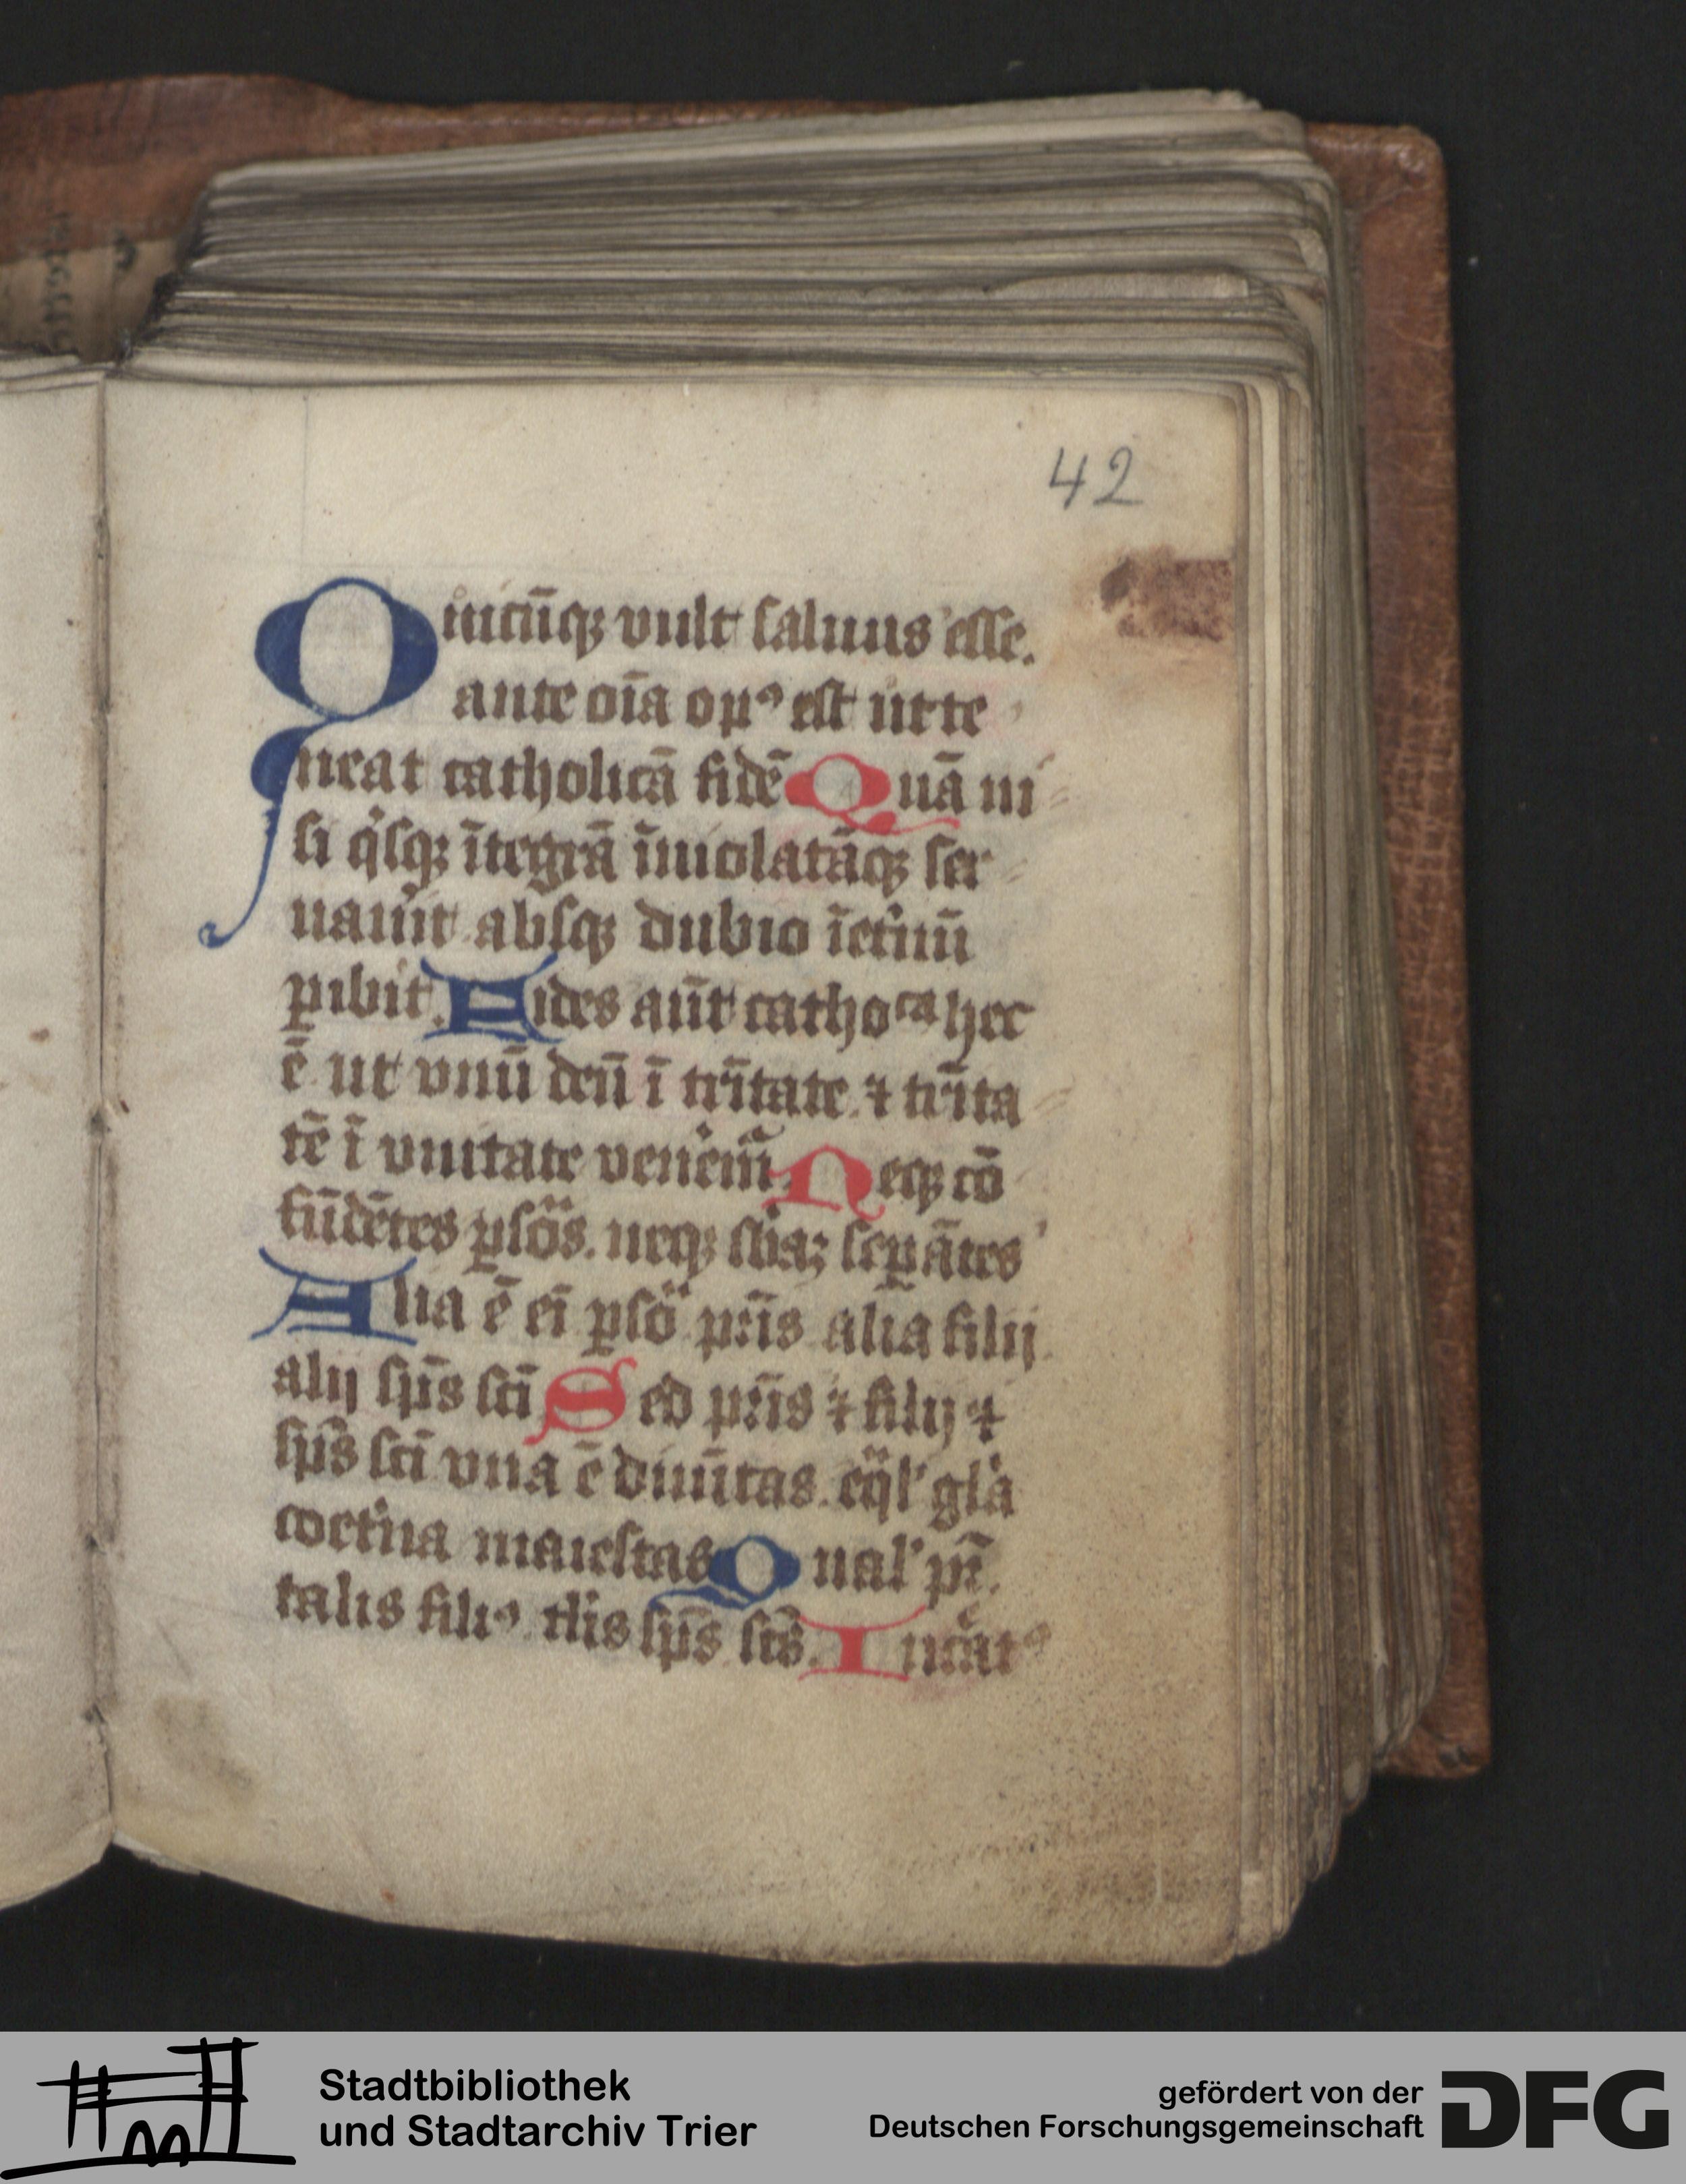 42
Quicūqꝫ vult saluus esse.
ante oīa opꝰ est ut te
neat catholicā fidē Quā ni
si qͥsqꝫ ītegrā īuiolatāqꝫ ser
uaũit absqꝫ dubio īet̾nū
ꝑibit. Fides aūt cathoᶜᵃ hec
ē ut vnū deū ī tͥnitate ⁊ tͥnita
tē ī vnitate ven̾em̾. Neqꝫ cō
fūdētes ꝑsōs. neqꝫ sbāꝫ seꝑātes
Alia ē eī ꝑsō pr̄is alia filij
alij sp̄s sc̄i Sed pr̄is ⁊ filij ⁊
sp̄s sc̄i vna ē diuītas. eq̄lʼ gl̄a
coet̾na maiestas Qualʼ pr̄.
talis filiꝰ tl̄is sp̄s sc̄s. Incͤatꝰ
Stadtbibliothek
und Stadtarchiv Trier
gefördert von der
Deutschen Forschungsgemeinschaft
DFG